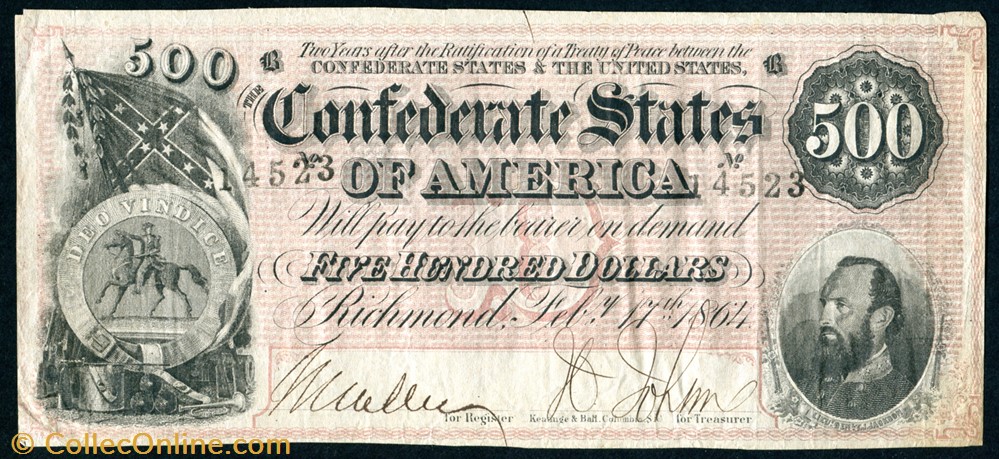 500
B Two Years after the Ratification of a Treaty of Peace between the B
CONFEDERATE STATES & THE UNITED STATES,
THE
Confederate States
500
No 14523
OF AMERICA
No 14523
DEO VINDICE
Will pay to the bearer on demand
FIVE HUNDRED DOLLARS
Richmond, Feby. 17th, 1864
for Register
Keatinge & Ball, Columbia, S.C.
for Treasurer
© CollecOnline.com